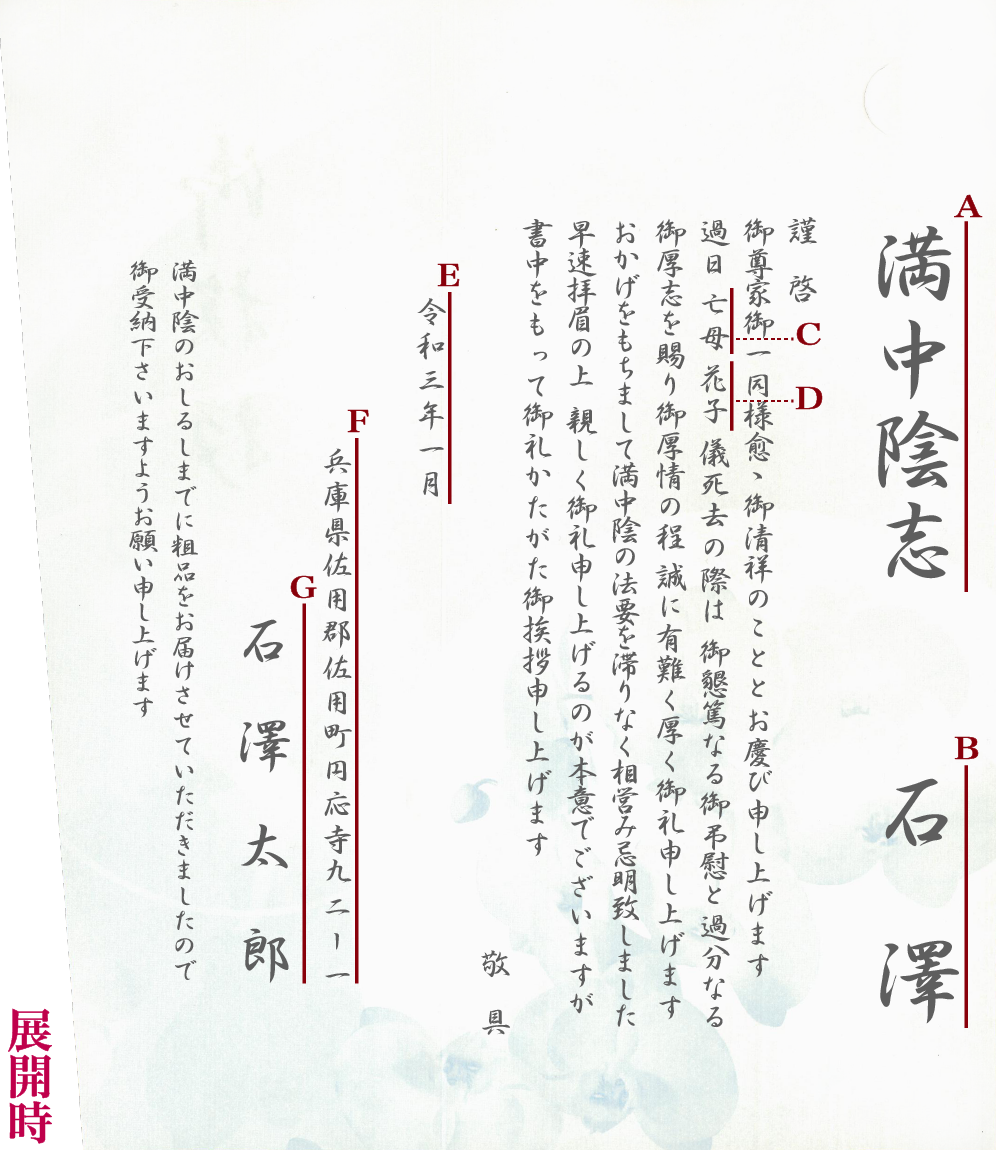 A
満中陰志
B
石澤
謹啓
御尊家御一同様愈々御清祥のこととお慶び申し上げます
過日 亡母 花子 儀死去の際は 御懇篤なる御弔慰と過分なる
C
D
御厚志を賜り御厚情の程 誠に有難く厚く御礼申し上げます
おかげをもちまして満中陰の法要を滞りなく相営み忌明致しました
早速拝眉の上 親しく御礼申し上げるのが本意でございますが
書中をもって御礼かたがた御挨拶申し上げます
敬具
E
令和三年一月
F
兵庫県佐用郡佐用町円応寺九二ー一
G
石澤太郎
満中陰のおしるしまでに粗品をお届けさせていただきましたので
御受納下さいますようお願い申し上げます
展開時